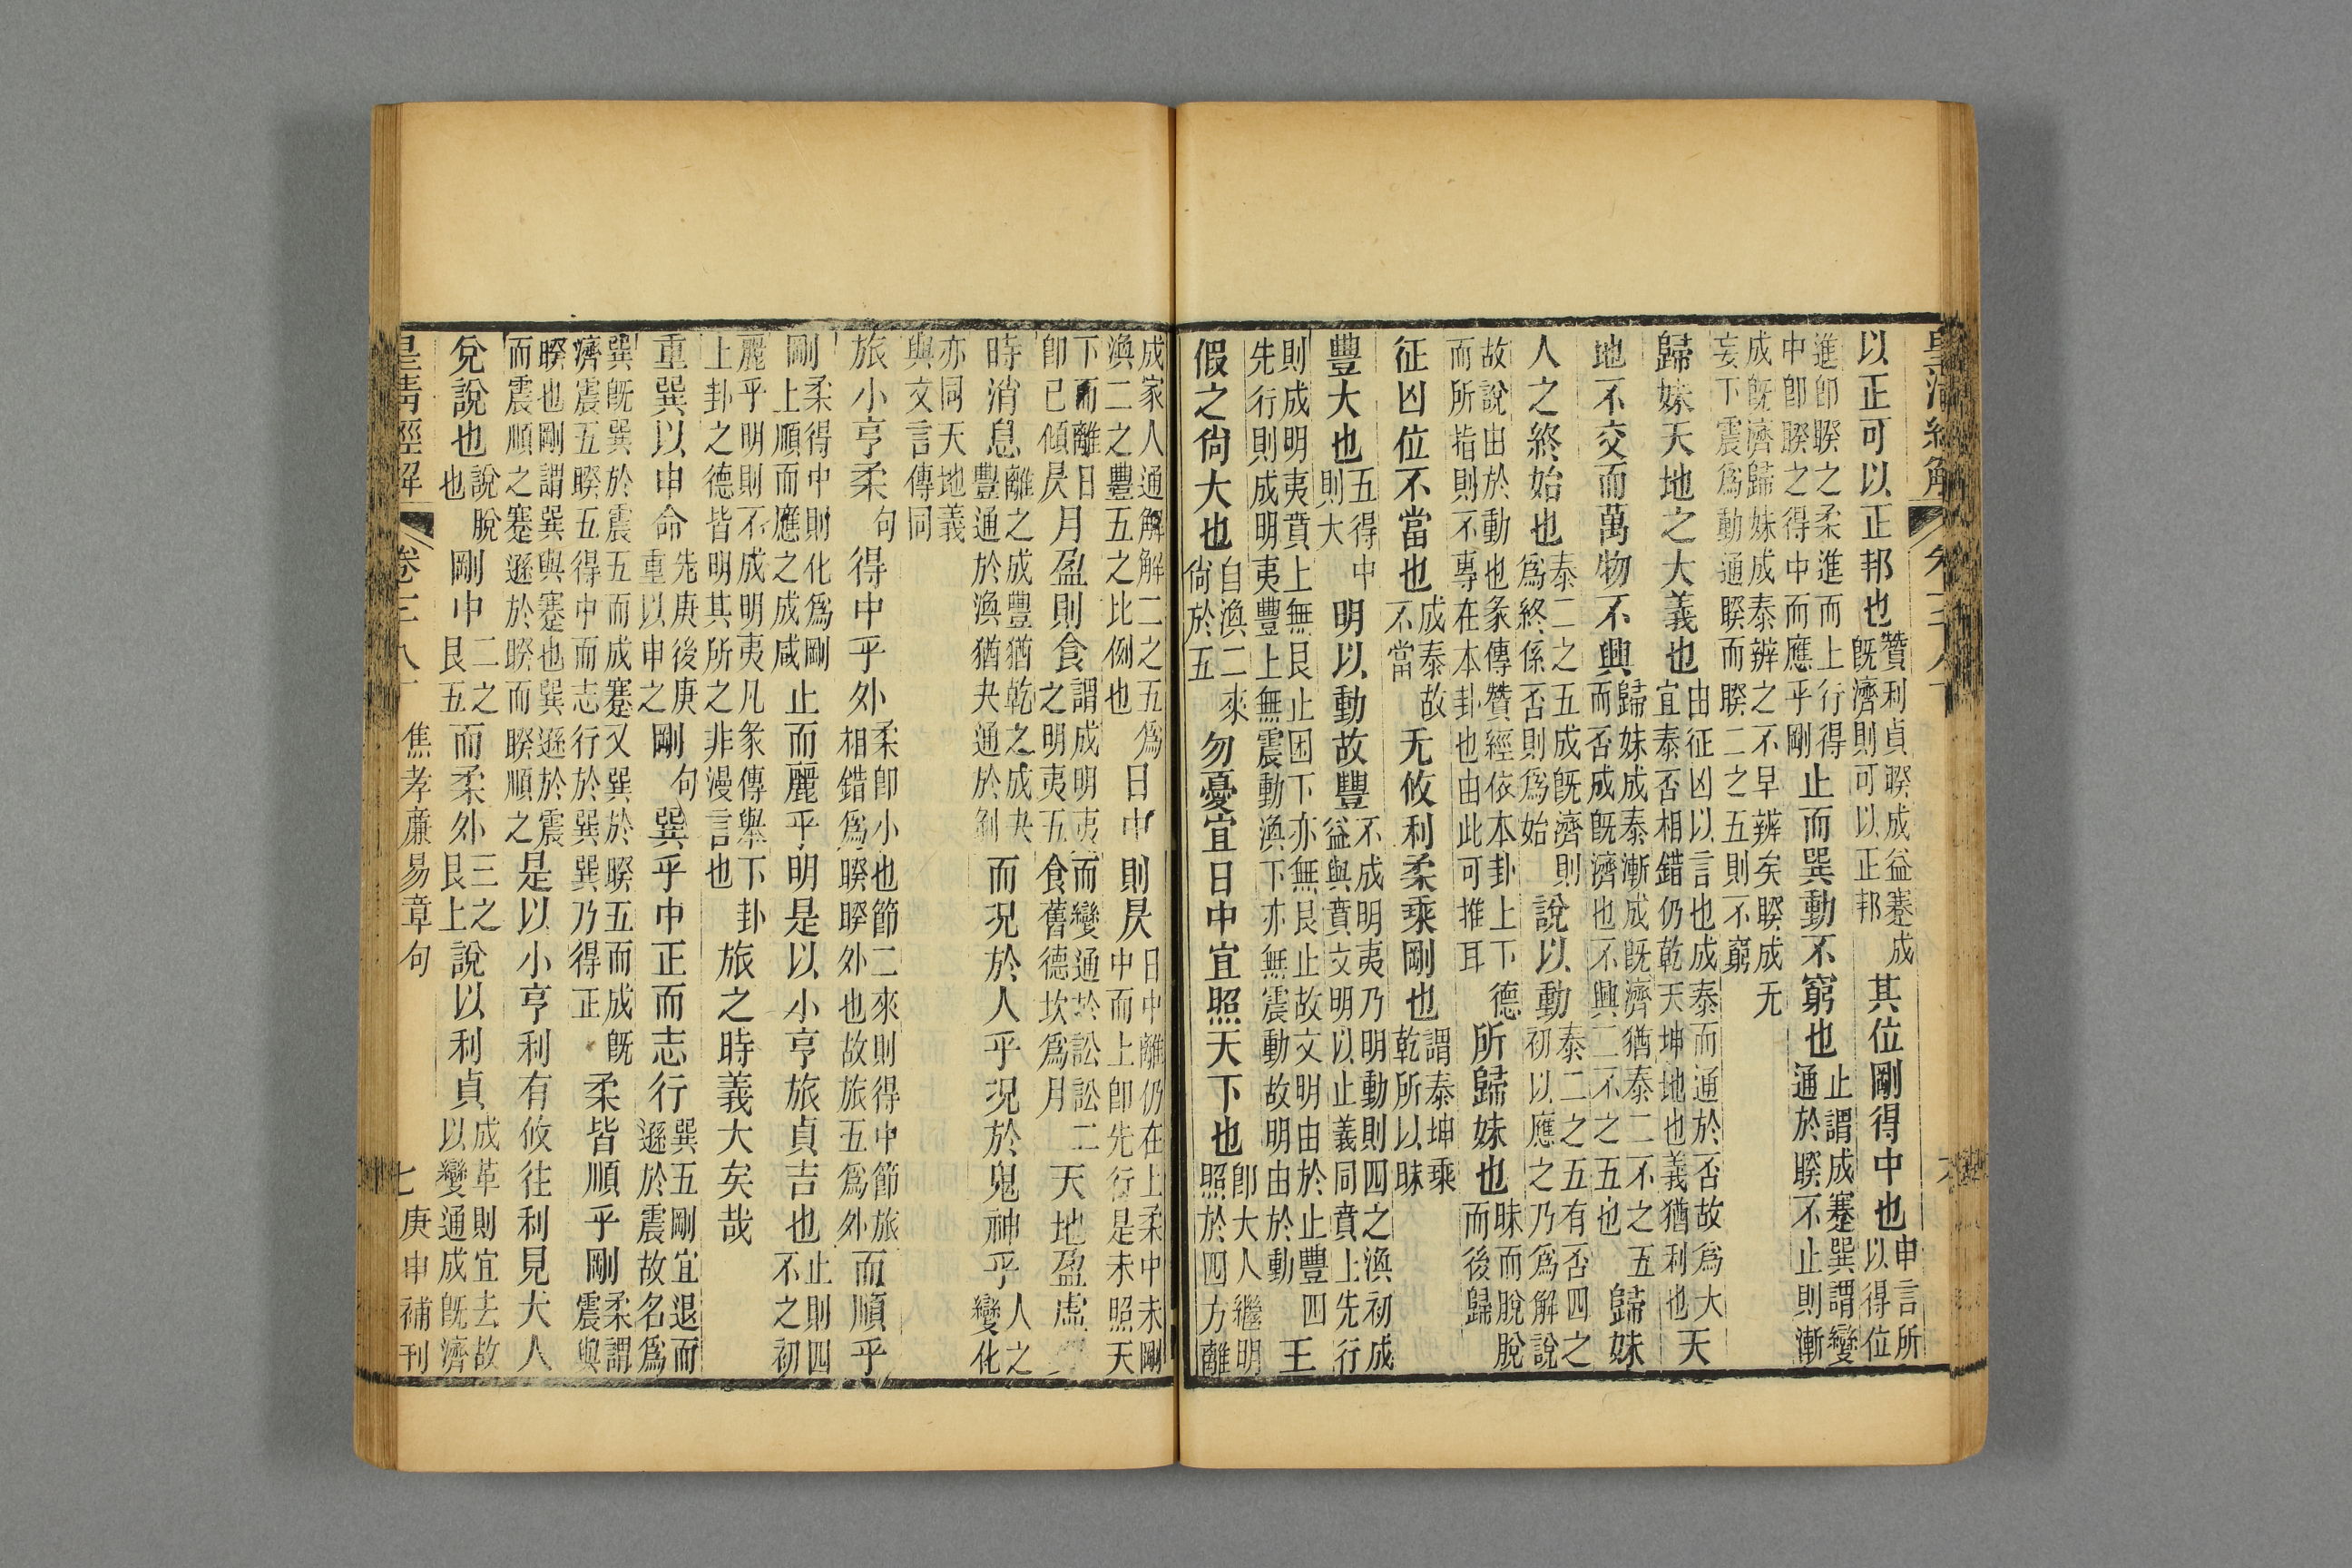 皇清經解
以正可以正邦也贊利貞睽成益蹇成既濟則可以正邦其位剛得中也申言所以得位
進卽睽之柔進而上行得中卽睽之得中而應乎剛止而巽動不窮也止謂成蹇巽謂變通於睽不止則漸
成既濟歸妹成泰辨之不早辨矣睽成无妄下震爲動通睽而睽二之五則不窮
歸妹天地之大義也由征凶以言也成泰而通於否故爲大宜泰否相錯仍乾天坤地也義猶利也天
地不交而萬物不興歸妹成泰漸成既濟猶泰二不之五而否成既濟也不興二不之五也歸妹
人之終始也泰二之五成既濟則爲終係否則爲始說以動泰二之五有否四之初以應之乃爲解說
故說由於動也彖傳贊經依本卦上下德而所指則不專在本卦也由此可推耳所歸妹也昧而脫脫而後歸
征凶位不當也成泰故不當无攸利柔乘剛也謂泰坤乘乾所以昧
豐大也五得中則大明以動故豐不成明夷乃明動則四之渙初成益與賁文明以止義同賁上先行
則成明夷賁上無艮止困下亦無艮止故文明由於止豐四先行則成明夷豐上無震動渙下亦無震動故明由於動王
假之尙大也自渙二來尙於五勿憂宜日中宜照天下也卽大人繼明照於四方離
成家人通解解二之五爲渙二之豐五之比例也日中則昃日中離仍在上柔中未剛中而上卽先行是未照天
下而離日卽已傾昃月盈則食謂成明夷而變通於訟訟二之明夷五食舊德坎爲月天地盈虛
時消息離之成豐猶乾之成夬豐通於渙猶夬通於剝而況於人乎況於鬼神乎人之變化
亦同天地義與文言傳同
旅小亨柔句得中乎外柔卽小也節二來則得中節旅相錯爲睽睽外也故旅五爲外而順乎
剛柔得中則化爲剛上順而應之成咸止而麗乎明是以小亨旅貞吉也止則四不之初
麗乎明則不成明夷凡彖傳舉下卦上卦之德皆明其所之非漫言也旅之時義大矣哉
重巽以申命先庚後庚重以申之剛句巽乎中正而志行巽五剛宜退而遜於震故名爲
巽既巽於震五而成蹇又巽於睽五而成既濟震五睽五得中而志行於巽巽乃得正柔皆順乎剛柔謂震與
睽也剛謂巽與蹇也巽遜於震而震順之蹇遜於睽而睽順之是以小亨利有攸往利見大人
兌說也說脫也剛中二之艮五而柔外三之艮上說以利貞成革則宜去故以變通成既濟
皇清經解 焦孝廉易章句 七 庚申補刊